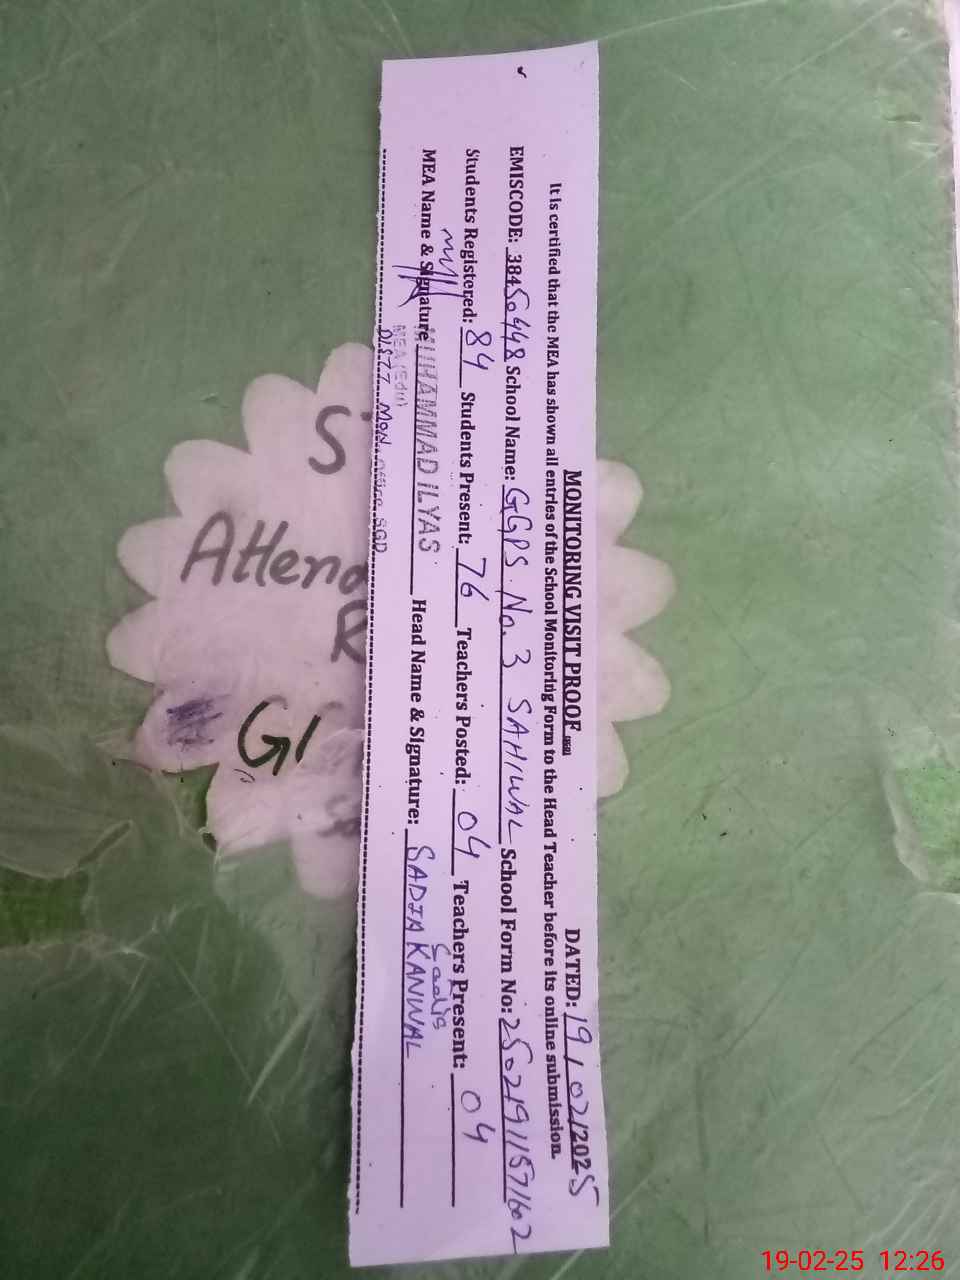 MONITORING VISIT PROOF
DATED: 19/02/2025
It is certified that the MEA has shown all entries of the School Monitoring Form to the Head Teacher before its online submission.
EMISCODE: 38450448 School Name: GGPS No. 3 SAHIWAL School Form No: 2502191157602
Students Registered: 84 Students Present: 76 Teachers Posted: 04 Teachers Present: 04
Sadia
MEA Name & Signature MUHAMMAD ILYAS Head Name & Signature: SADIA KANWAL
MEA (Edu)
DISTT MON. OFFICE SGD
S
Attend
R
G
19-02-25 12:26